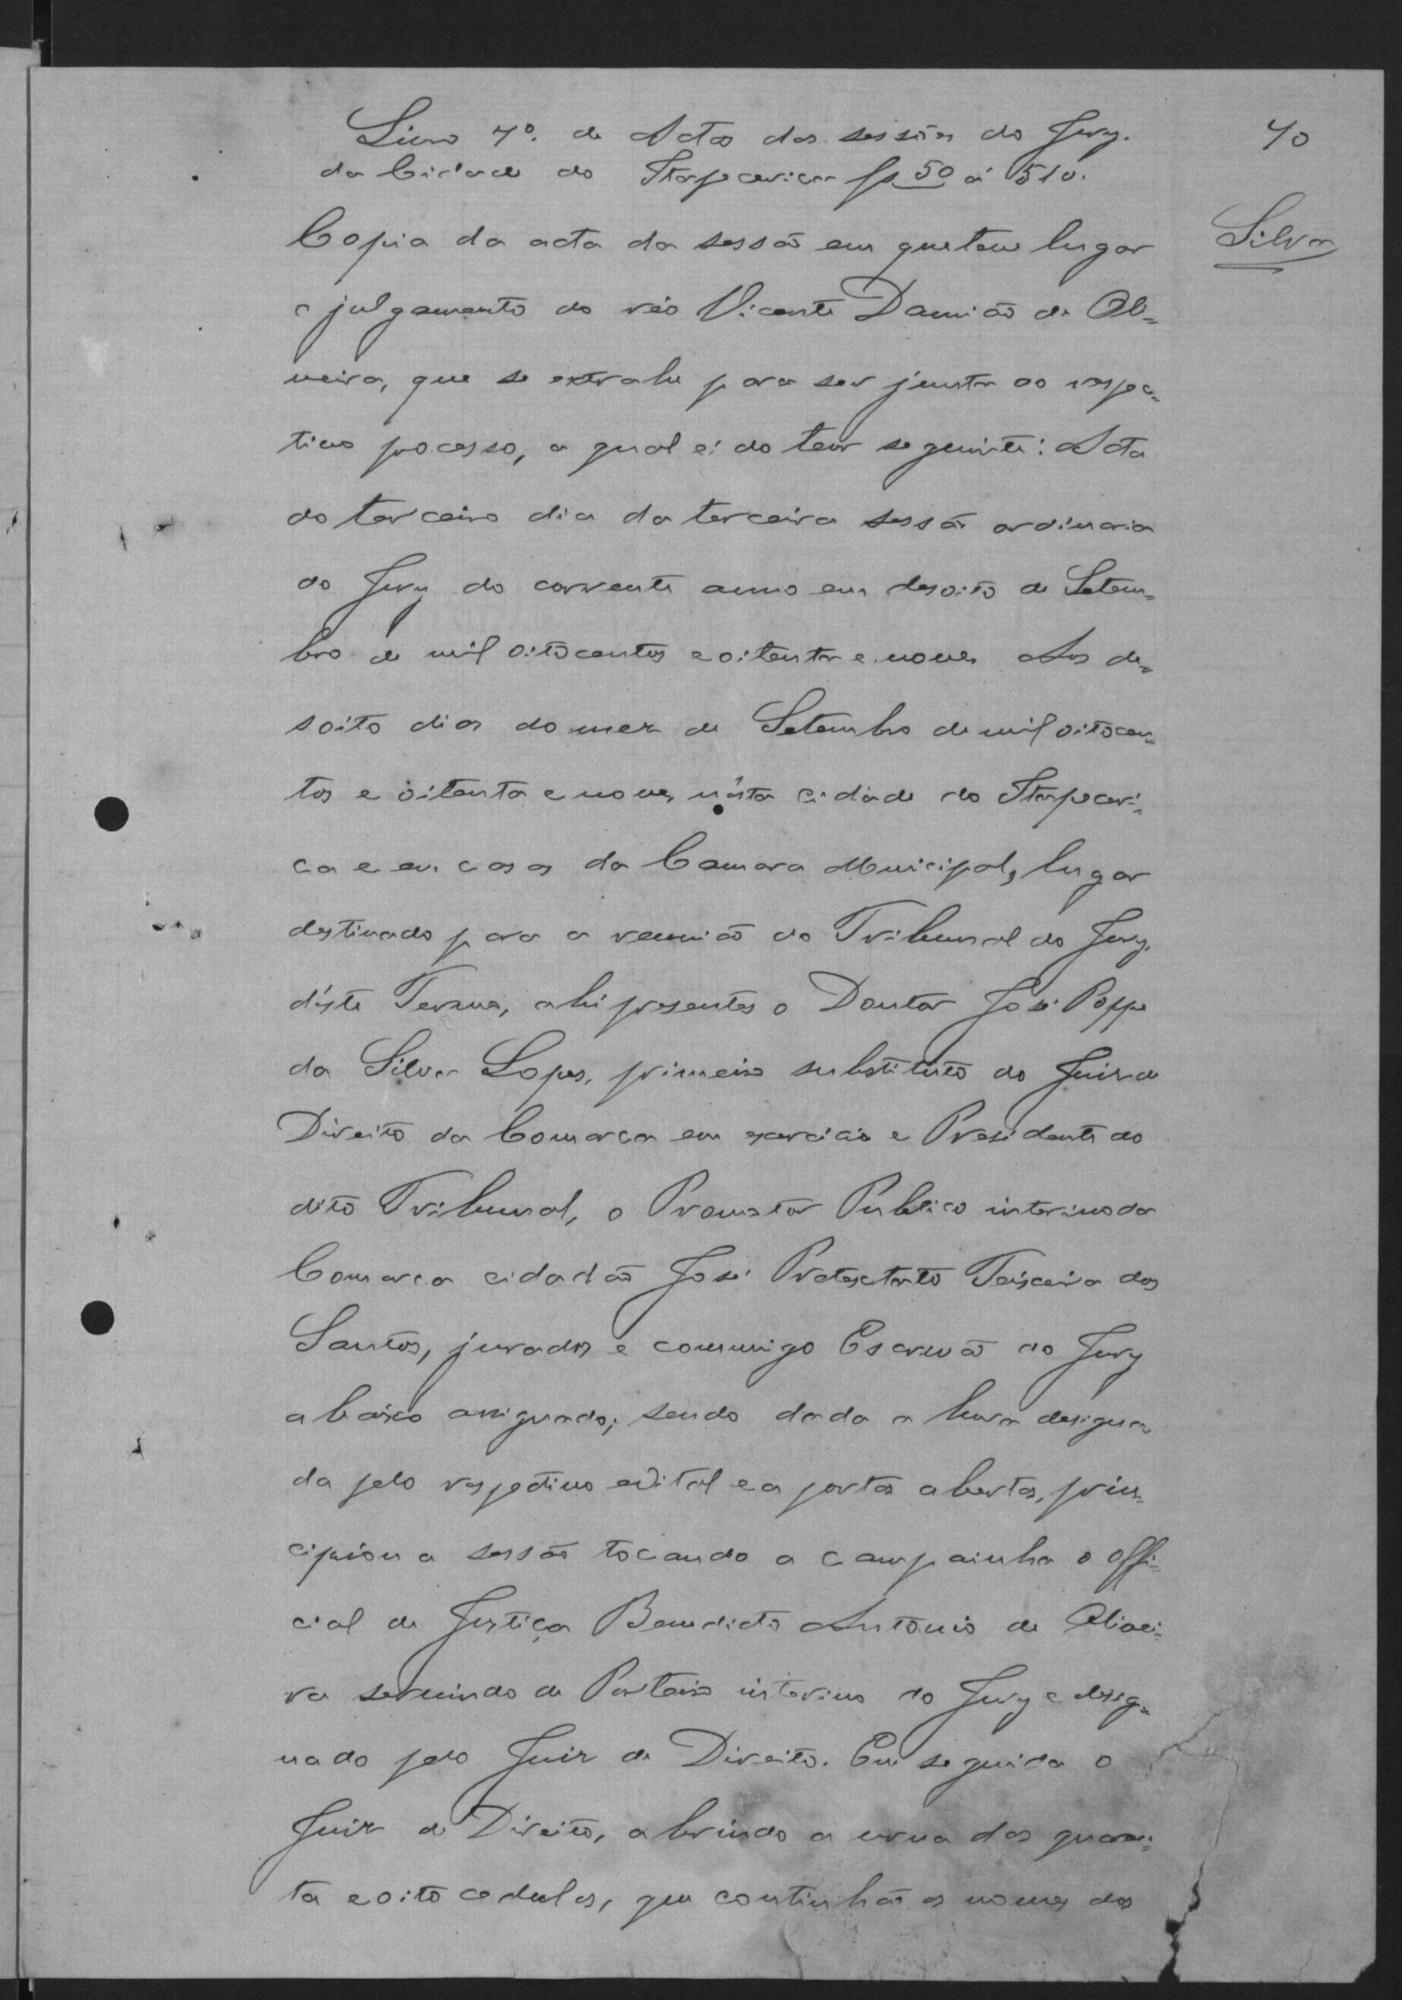 Livro 7º. de Actas das sessões do Jury.
da Cidade do Itapecerica fs 50 á 51v.
70
Silva
Copia da acta da sessão em que teve lugar
o julgamento do réo Vicente Damião de Oli-
veira, que se extrahe para ser junta ao respec-
tivo processo, a qual é do teor seguinte: Acta
do terceiro dia da terceira sessão ordinaria
do Jury do corrente anno em desoito de Setem-
bro de mil oitocentos e oitenta e nove. Aos de-
soito dias do mez de Setembro de mil oitocen-
tos e oitenta e nove, nésta cidade do Itapeceri-
ca e em casa da Camara Municipal, lugar
destinado para a reunião do Tribunal do Jury,
déste Termo, ahi presentes o Doutor José Poppe
da Silva Lopes, primeiro substituto do Juiz de
Direito da Comarca em exercicio e Presidente do
dito Tribunal, o Promotor Publico interino da
Comarca cidadão José Teixeira dos
Santos, jurados e commigo Escrivão do Jury
abaixo assignado; sendo dada a hora designa-
da pelo respectivo edital e a portas abertas, prin-
cipiou a sessão tocando a campainha o offi-
cial de Justiça Benedicto Antonio de Olivei-
ra servindo de Porteiro interino do Jury e desig-
nado pelo Juiz de Direito. Em seguida o
Juiz de Direito, abrindo a urna das quaren-
ta e oito cedulas, que continhão os nomes dos